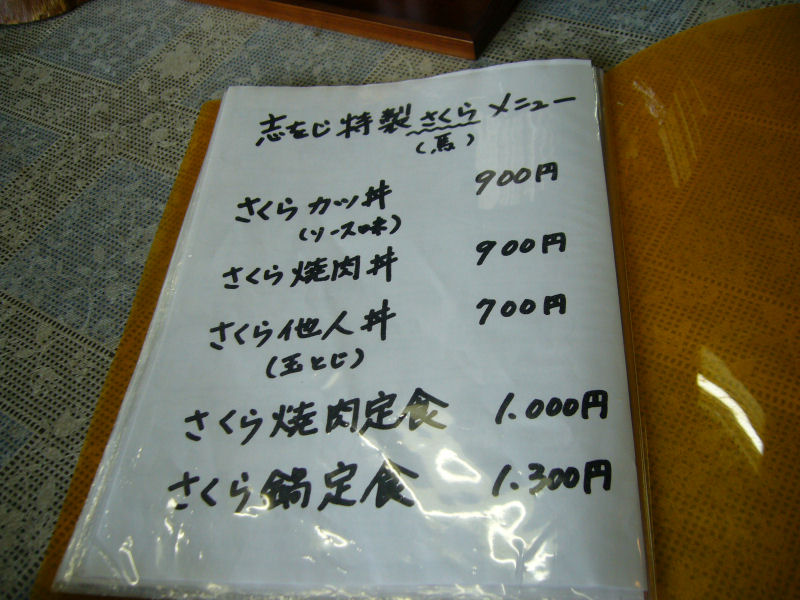 志をじ特製さくらメニュー
(馬)
さくらカツ丼 900円
(ソース味)
さくら焼肉丼 900円
さくら他人丼 700円
(玉とじ)
さくら焼肉定食 1.000円
さくら鍋定食 1.300円